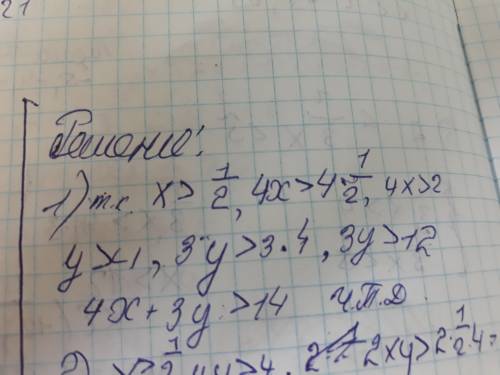 21
Решение:
1) т.к. x > 1/2, 4x > 4·1/2, 4x > 2
y > 4, 3·y > 3·4, 3y > 12
4x + 3y > 14 Ч.Т.Д.
2) x > 1/2, y > 4, 2xy > 2·1/2·4=